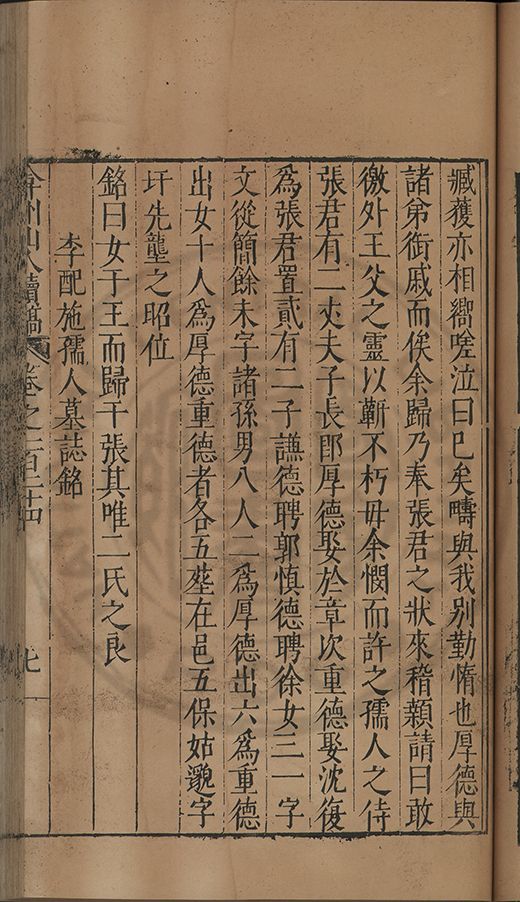 臧獲亦相嚮唴泣曰已矣疇與我别勤惰也厚德與
諸弟銜戚而俟余歸乃奉張君之狀來稽顙請曰敢
徼外王父之靈以蘄不朽毋余憫而許之孺人之侍
張君有二丈夫子長即厚德娶於章次重德娶沈復
為張君置貳有二子謙德聘郭慎德聘徐女三一字
文從簡餘未字諸孫男八人二為厚德出六為重德
出女十人為厚德重德者各五塟在邑五保姑邈字
圩先壟之昭位
銘曰女于王而歸于張其唯二氏之良
李配施孺人墓誌銘
弇州山人續稿 卷之一百二十四 七